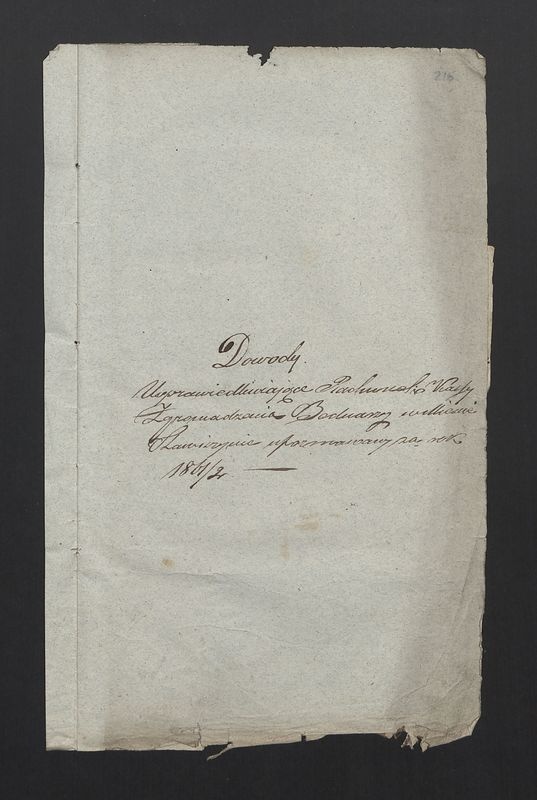 216.
Dowody.
Usprawiedliwiające Rachunek Kassy
Zgromadzenia Bednarzy w Mieście
Stawiszynie uformowany za rok
1861/2